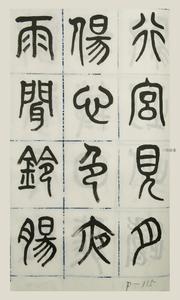 行宮見月
傷心色夜
雨聞鈴腸
P-115